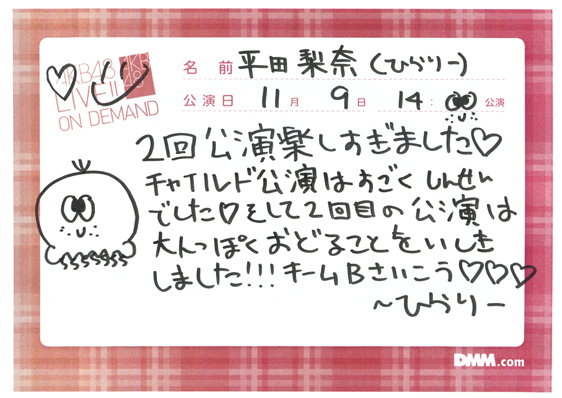 AKB48
LIVE!!
ON DEMAND
AKB
48
名前 平田梨奈(ひらりー)
公演日 11月 9日 14: 公演
2回公演楽しすぎました♡
チャイルド公演はすごくしんせん
でした♡そして2回目の公演は
大人っぽくおどることをいしき
しました!!!チームBさいこう♡♡♡
〜ひらりー
DMM.com